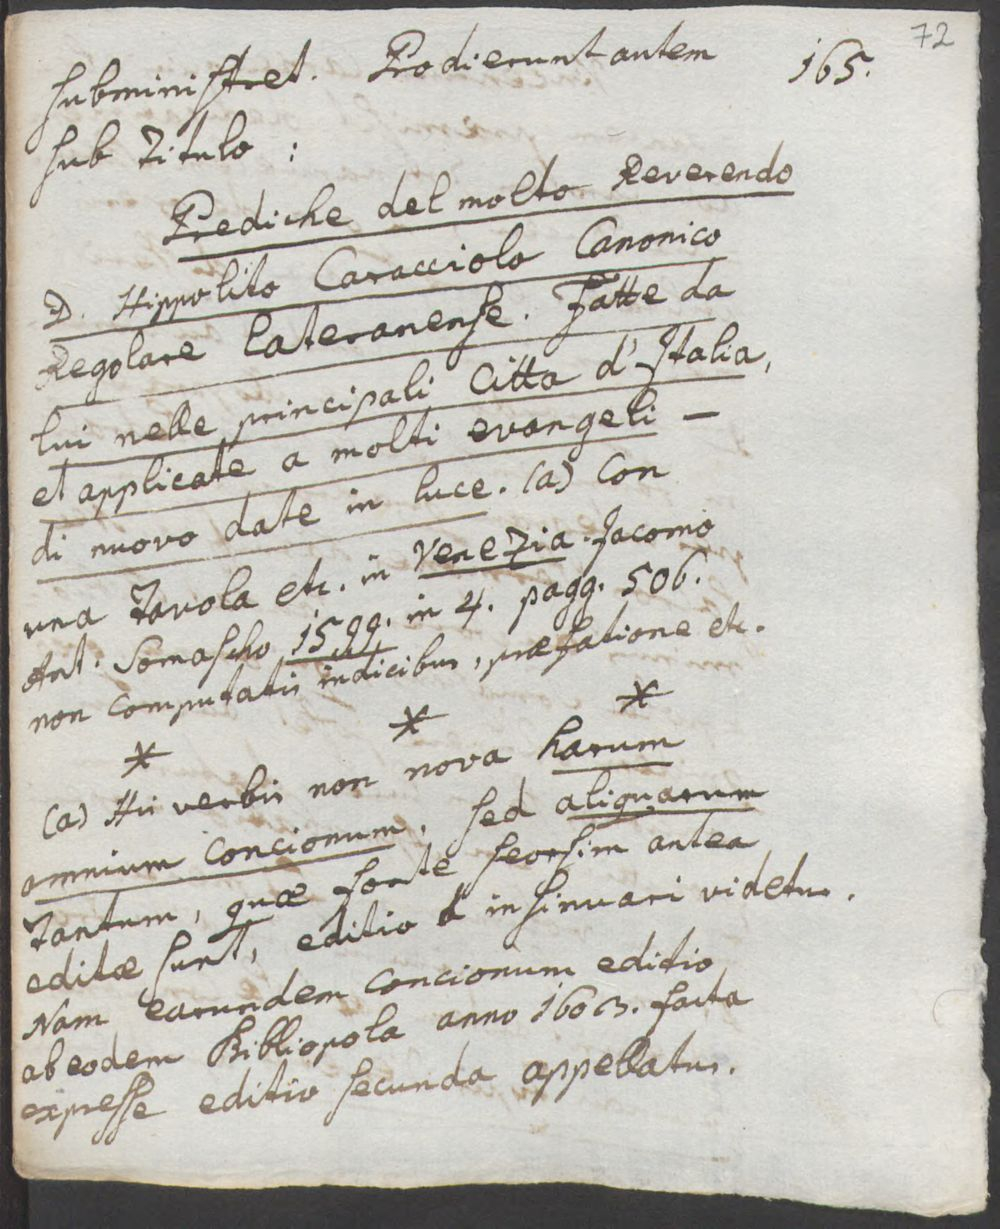 72
subministret. Prodierunt autem 165.
sub Titulo :
Prediche del molto Reverendo
D. Hippolito Caracciolo Canonico
Regolare Lateranense. Fatte da
lui nelle principali Citta d'Italia,
et applicate a molti evangeli —
di nuovo date in luce. (a) Con
una Tavola etc. in Venezia. Jacomo
Ant. Somascho 1599. in 4. pagg. 506.
non computatis indicibus, præfatione etc.
* * *
(a) His verbis non nova harum
omnium concionum, sed aliquarum
Tantum, quæ forte seorsim antea
editæ sunt, editio insinuari videtur.
Nam earundem concionum editio
ab eodem Bibliopola anno 1603. facta
expresse editio secunda appellatur.